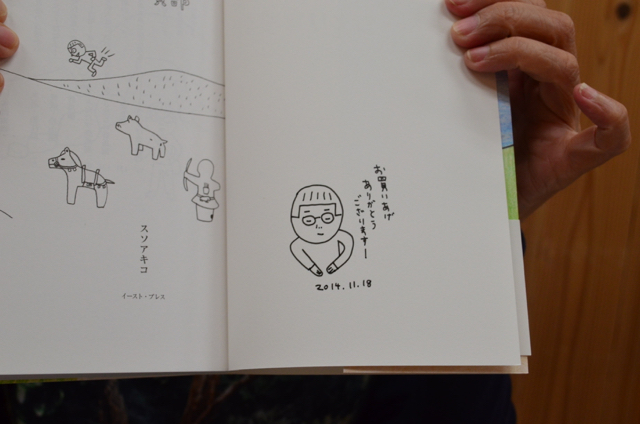 スソアキコ
イースト・プレス
お買いあげ
ありがとう
ございますー
2014.11.18